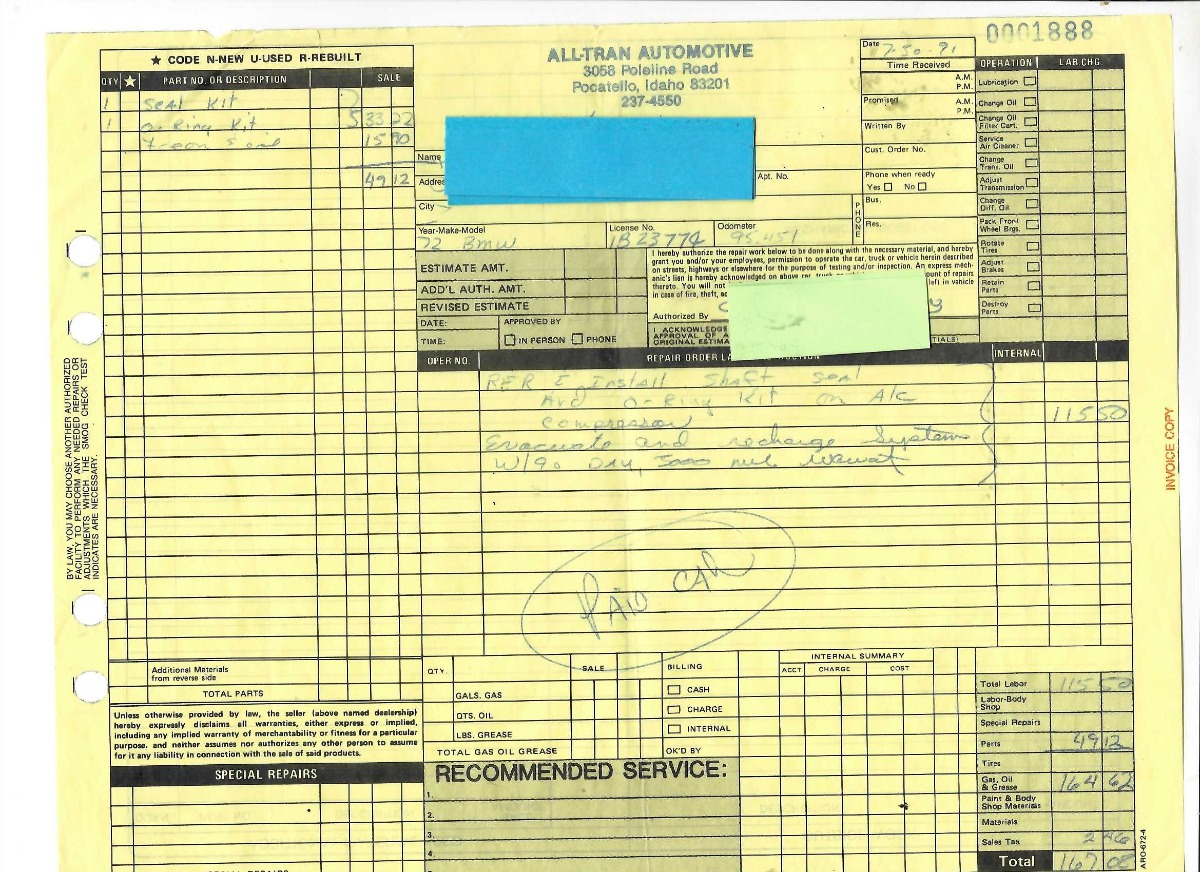 0001888
★ CODE N-NEW U-USED R-REBUILT
QTY ★ PART NO. OR DESCRIPTION SALE
1 Seal Kit
1 O-Ring Kit 33 22
Freon & oil 15 90
49 12
ALL-TRAN AUTOMOTIVE
3058 Poleline Road
Pocatello, Idaho 83201
237-4550
Date 7-30-91
Time Received
A.M.
P.M.
Promised A.M.
P.M.
Written By
Cust. Order No.
Phone when ready
Yes No
Name
Address
Apt. No.
City
PHONE
Bus.
Res.
Year-Make-Model
72 BMW
License No.
1B 23774
Odometer
95,451
OPERATION LAB CHG
Lubrication
Change Oil
Change Oil
Filter Cart.
Service
Air Cleaner
Change
Trans. Oil
Adjust
Transmission
Change
Diff. Oil
Pack Front
Wheel Brgs.
Rotate
Tires
Adjust
Brakes
Retain
Parts
Destroy
Parts
ESTIMATE AMT.
ADD'L AUTH. AMT.
REVISED ESTIMATE
DATE:
TIME:
APPROVED BY
IN PERSON PHONE
I hereby authorize the repair work below to be done along with the necessary material, and hereby
grant you and/or your employees, permission to operate the car, truck or vehicle herein described
on streets, highways or elsewhere for the purpose of testing and/or inspection. An express mech-
anic's lien is hereby acknowledged on above car, truck or amount of repairs
thereto. You will not left in vehicle
in case of fire, theft,
Authorized By
I ACKNOWLEDGE
APPROVAL OF A
ORIGINAL ESTIMA
OPER NO. REPAIR ORDER INTERNAL
R&R & Install Shaft Seal
And O-Ring Kit on A/C
Compressor 115 50
Evacuate and recharge System
W/90 Day, 3000 mile
Paid Cash
BY LAW, YOU MAY CHOOSE ANOTHER AUTHORIZED
FACILITY TO PERFORM ANY NEEDED REPAIRS OR
ADJUSTMENTS WHICH THE SMOG CHECK TEST
INDICATES ARE NECESSARY.
INVOICE COPY
Additional Materials
from reverse side
TOTAL PARTS
Unless otherwise provided by law, the seller (above named dealership)
hereby expressly disclaims all warranties, either express or implied,
including any implied warranty of merchantability or fitness for a particular
purpose, and neither assumes nor authorizes any other person to assume
for it any liability in connection with the sale of said products.
SPECIAL REPAIRS
QTY. SALE
GALS. GAS
QTS. OIL
LBS. GREASE
TOTAL GAS OIL GREASE
BILLING
CASH
CHARGE
INTERNAL
OK'D BY
INTERNAL SUMMARY
ACCT CHARGE COST
RECOMMENDED SERVICE:
1.
2.
3.
4.
Total Labor 115 50
Labor-Body
Shop
Special Repairs
Parts 49 12
Tires
Gas, Oil
& Grease 164 62
Paint & Body
Shop Materials
Materials
Sales Tax 2 46
Total 167 08
ARO-672-4